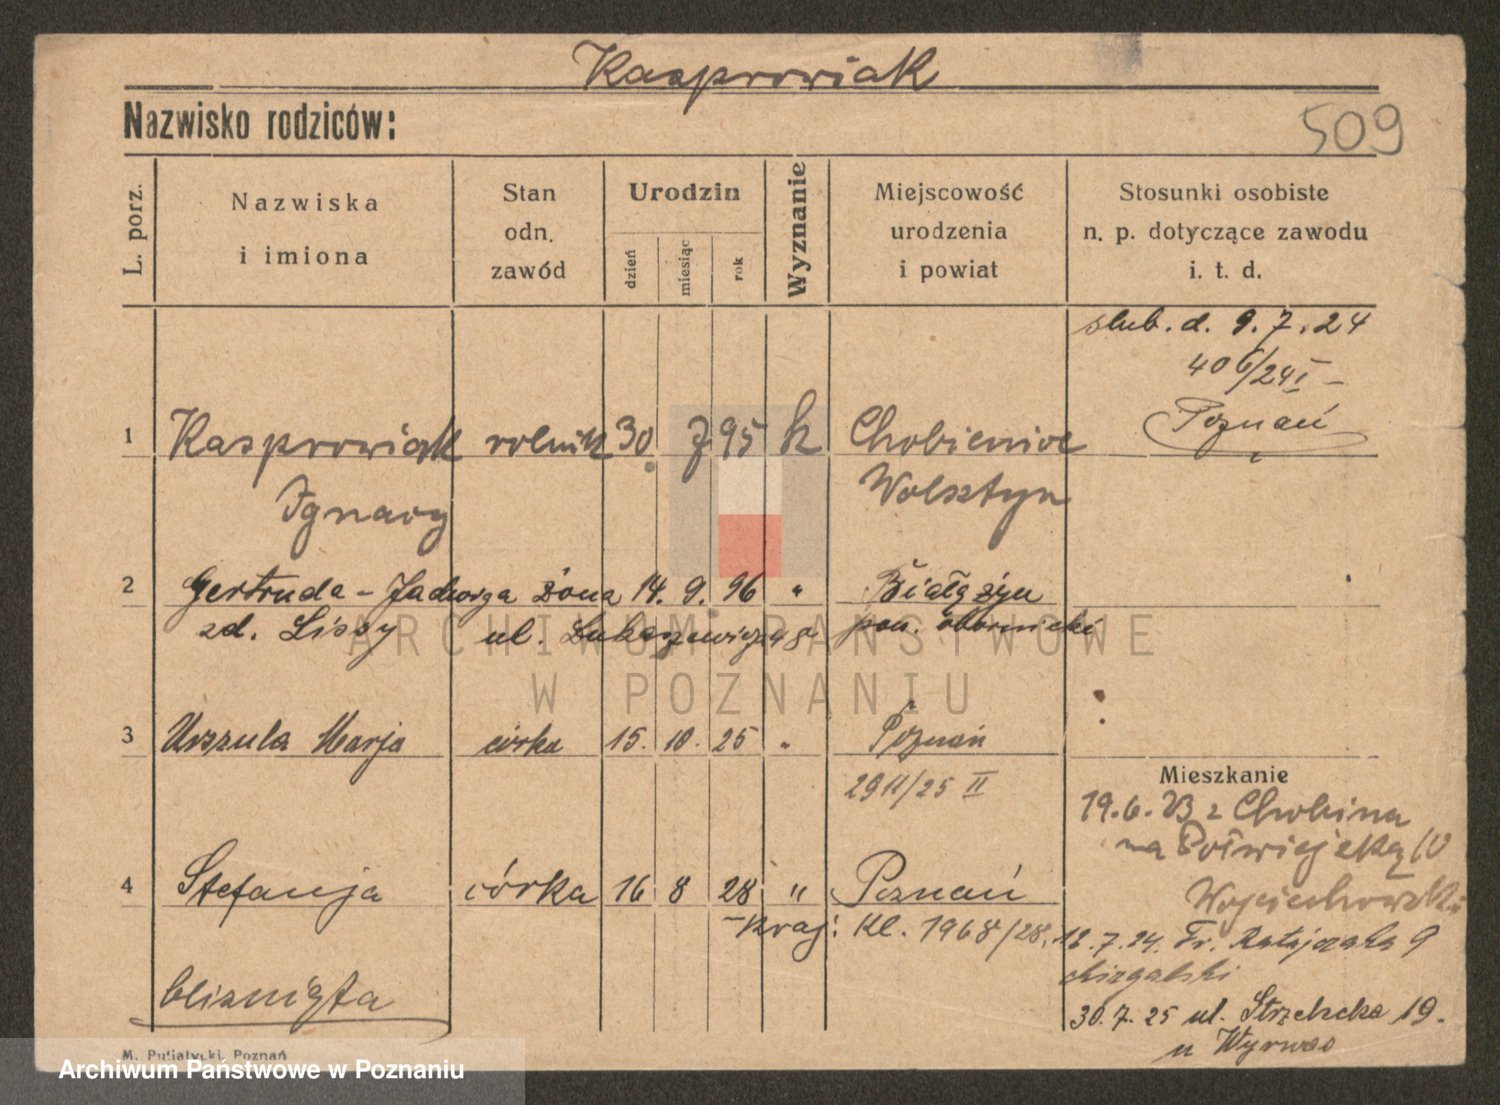 Kasprowiak
Nazwisko rodziców:
509
L. porz.
Nazwiska
i imiona
Stan
odn.
zawód
Urodzin
dzień
miesiąc
rok
Wyznanie
Miejscowość
urodzenia
i powiat
Stosunki osobiste
n. p. dotyczące zawodu
i. t. d.
slub. d. 9.7.24
406/24 I
Poznań
1 Kasprowiak rolnik 30 7 95 k Chobienice
Ignacy Wolsztyn
2 Gertruda - Jadwiga żona 14. 9. 96 " Białężyn
zd. Lissy ul. Łukaszewicza 48 pow. obornicki
3 Urszula Marja córka 15. 10. 25 " Poznań
2911/25 II
Mieszkanie
19.6.23 z Chobina
na
4 Stefanja córka 16 8 28 " Poznań
Wojciechowski
Kl. 1968/28.
12.7.24. Fr. Ratajczaka 9
bliźnięta
30.7.25 ul. Strzelecka 19.
u
M. Putiatycki, Poznań
ARCHIWUM PAŃSTWOWE
W POZNANIU
Archiwum Państwowe w Poznaniu